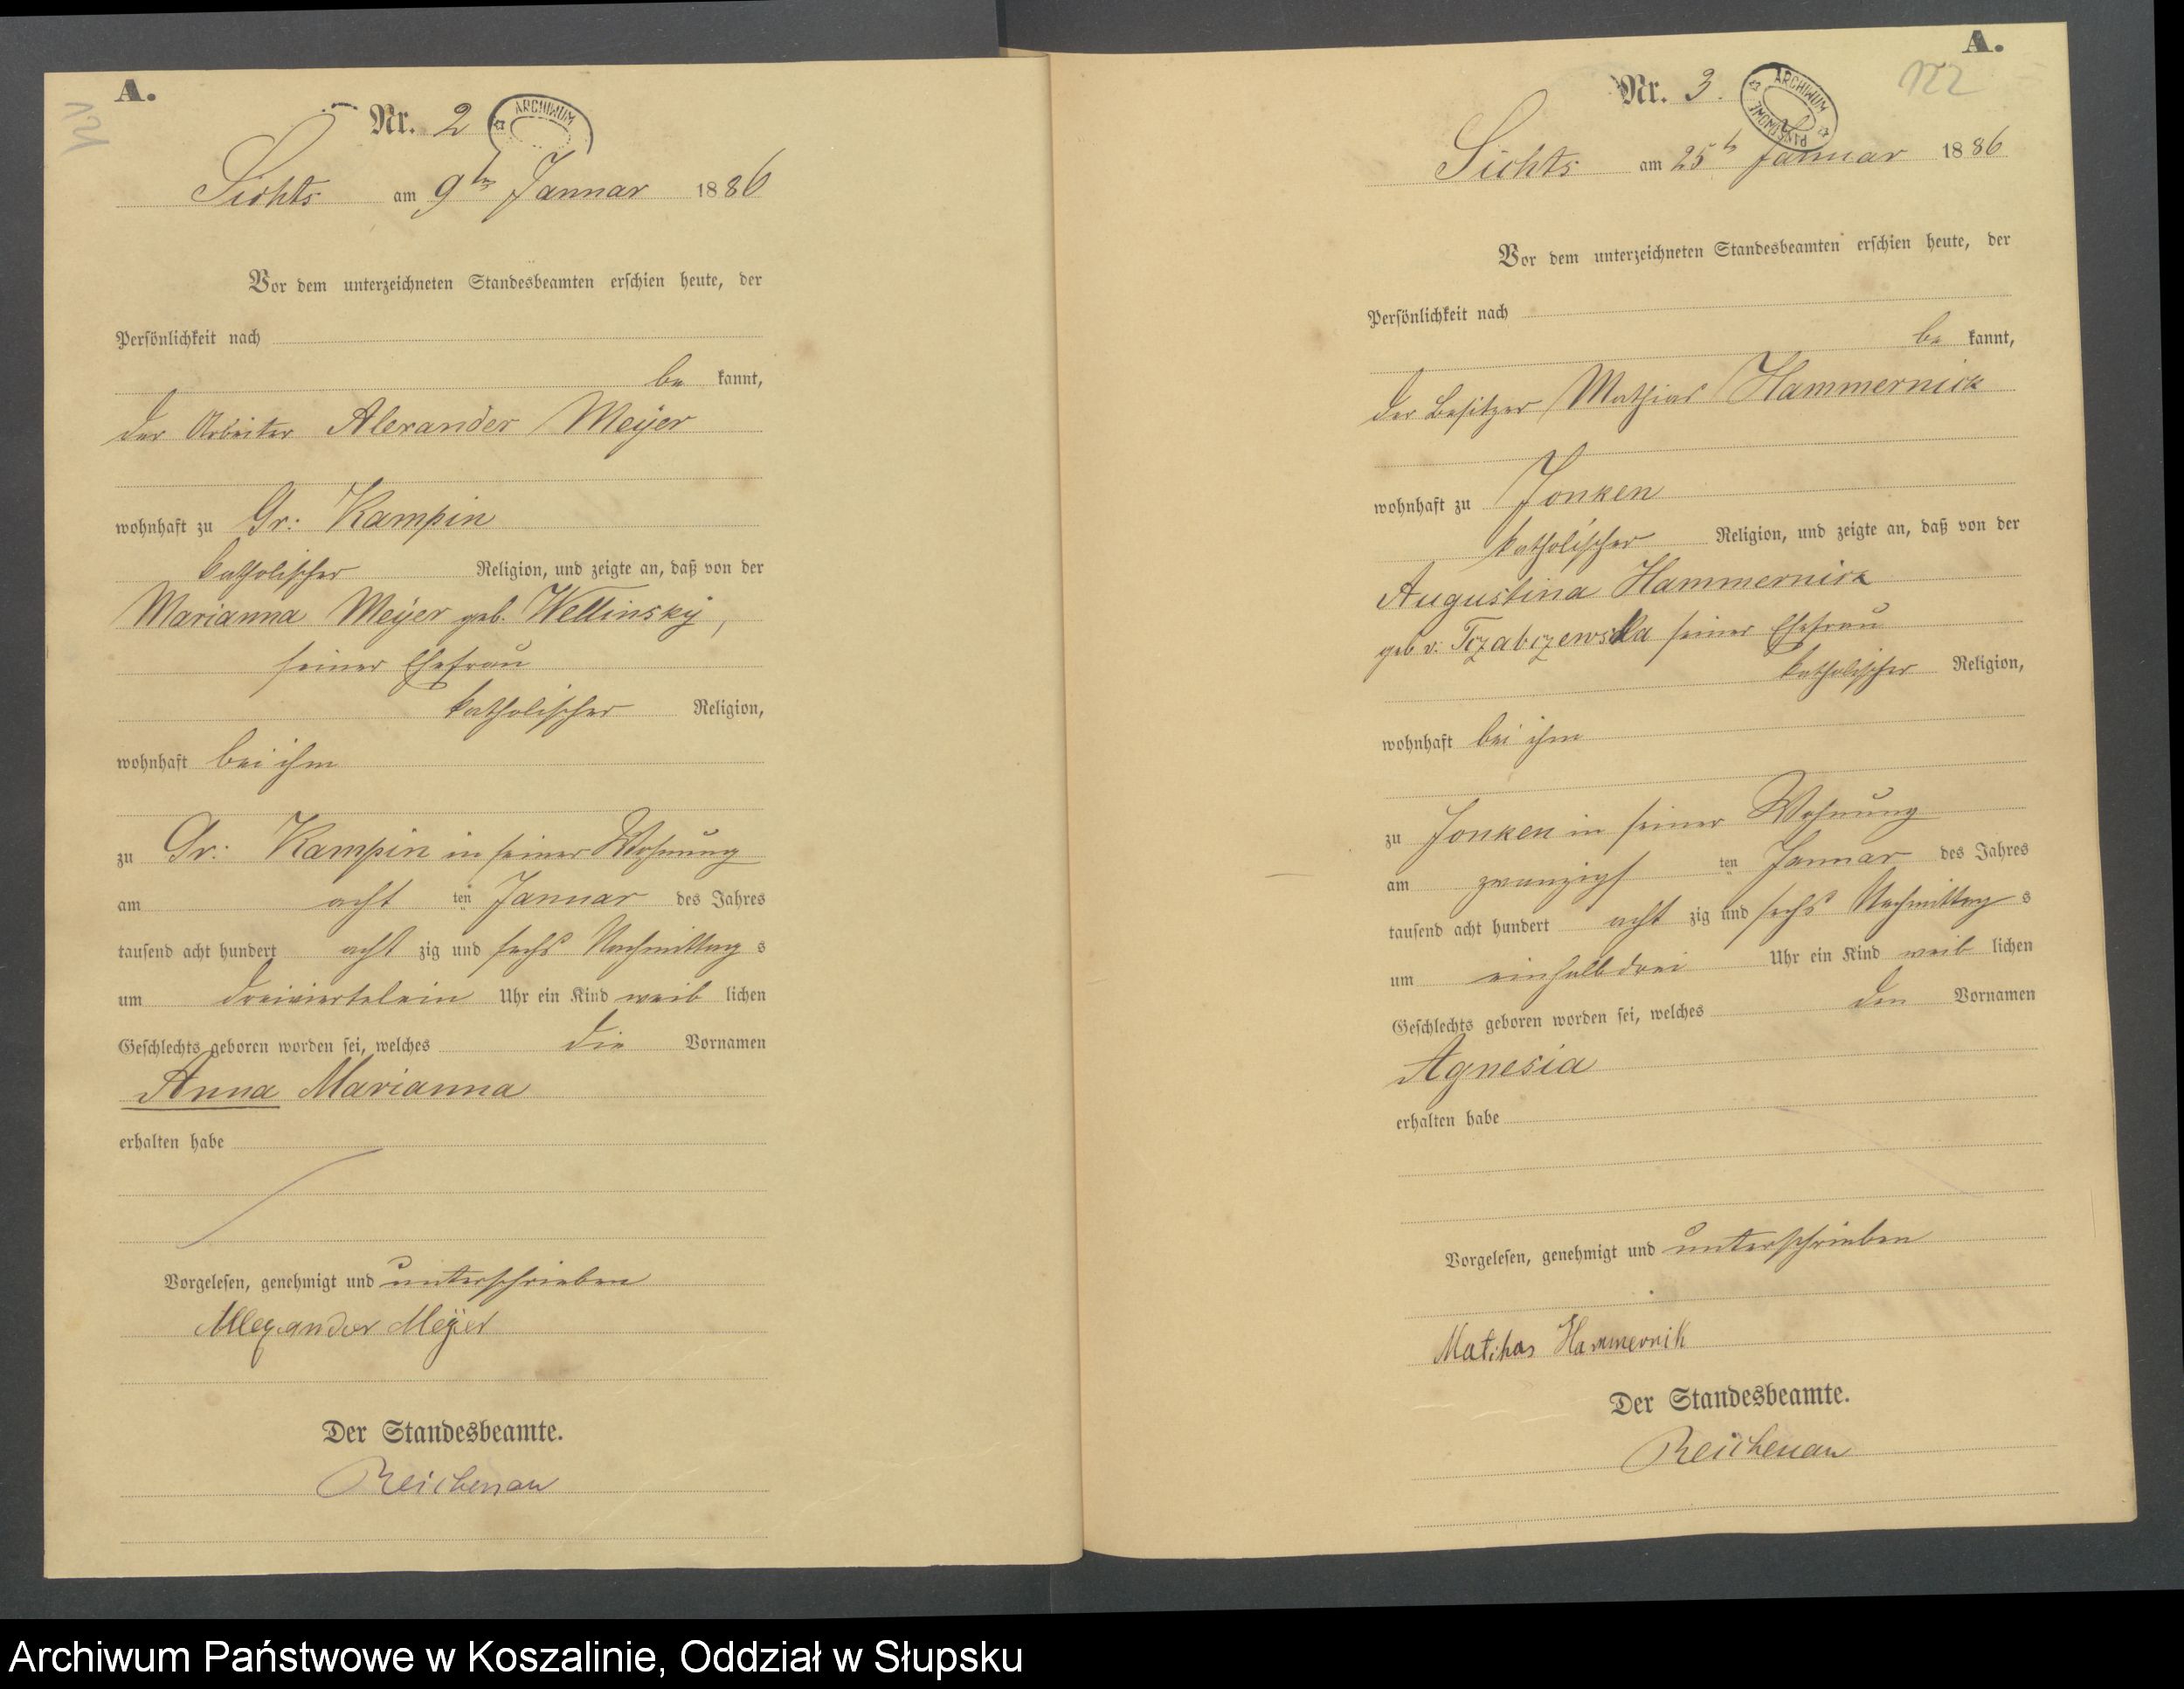 A.
Nr. 2
ARCHIWUM
Sichts am 9ten Januar 1886
Vor dem unterzeichneten Standesbeamten erschien heute, der
Persönlichkeit nach
be kannt,
der Arbeiter Alexander Meÿer
wohnhaft zu Gr. Kampin
katholischer Religion, und zeigte an, daß von der
Marianna Meÿer geb. Wellinskÿ,
seiner Ehefrau
katholischer Religion,
wohnhaft bei ihm
zu Gr. Kampin in seiner Wohnung
am acht ten Januar des Jahres
tausend acht hundert acht zig und sechs Nachmittag s
um dreiviertelein Uhr ein Kind weib lichen
Geschlechts geboren worden sei, welches die Vornamen
Anna Marianna
erhalten habe
Vorgelesen, genehmigt und unterschrieben
Alexander Meÿer
Der Standesbeamte.
Reichenau
A.
122
Nr. 3.
ARCHIWUM PAŃSTWOWE
Sichts am 25t Januar 1886
Vor dem unterzeichneten Standesbeamten erschien heute, der
Persönlichkeit nach
be kannt,
der Besitzer Mathias Hammernick
wohnhaft zu Jonken
katholischer Religion, und zeigte an, daß von der
Augustina Hammernick
geb v. seiner Ehefrau
katholischer Religion,
wohnhaft bei ihm
zu Jonken in seiner Wohnung
am zwanzigs ten Januar des Jahres
tausend acht hundert acht zig und sechs Nachmittag s
um einhalbdrei Uhr ein Kind weib lichen
Geschlechts geboren worden sei, welches den Vornamen
Agnesia
erhalten habe
Vorgelesen, genehmigt und unterschrieben
Mathias Hammernik
Der Standesbeamte.
Reichenau
Archiwum Państwowe w Koszalinie, Oddział w Słupsku